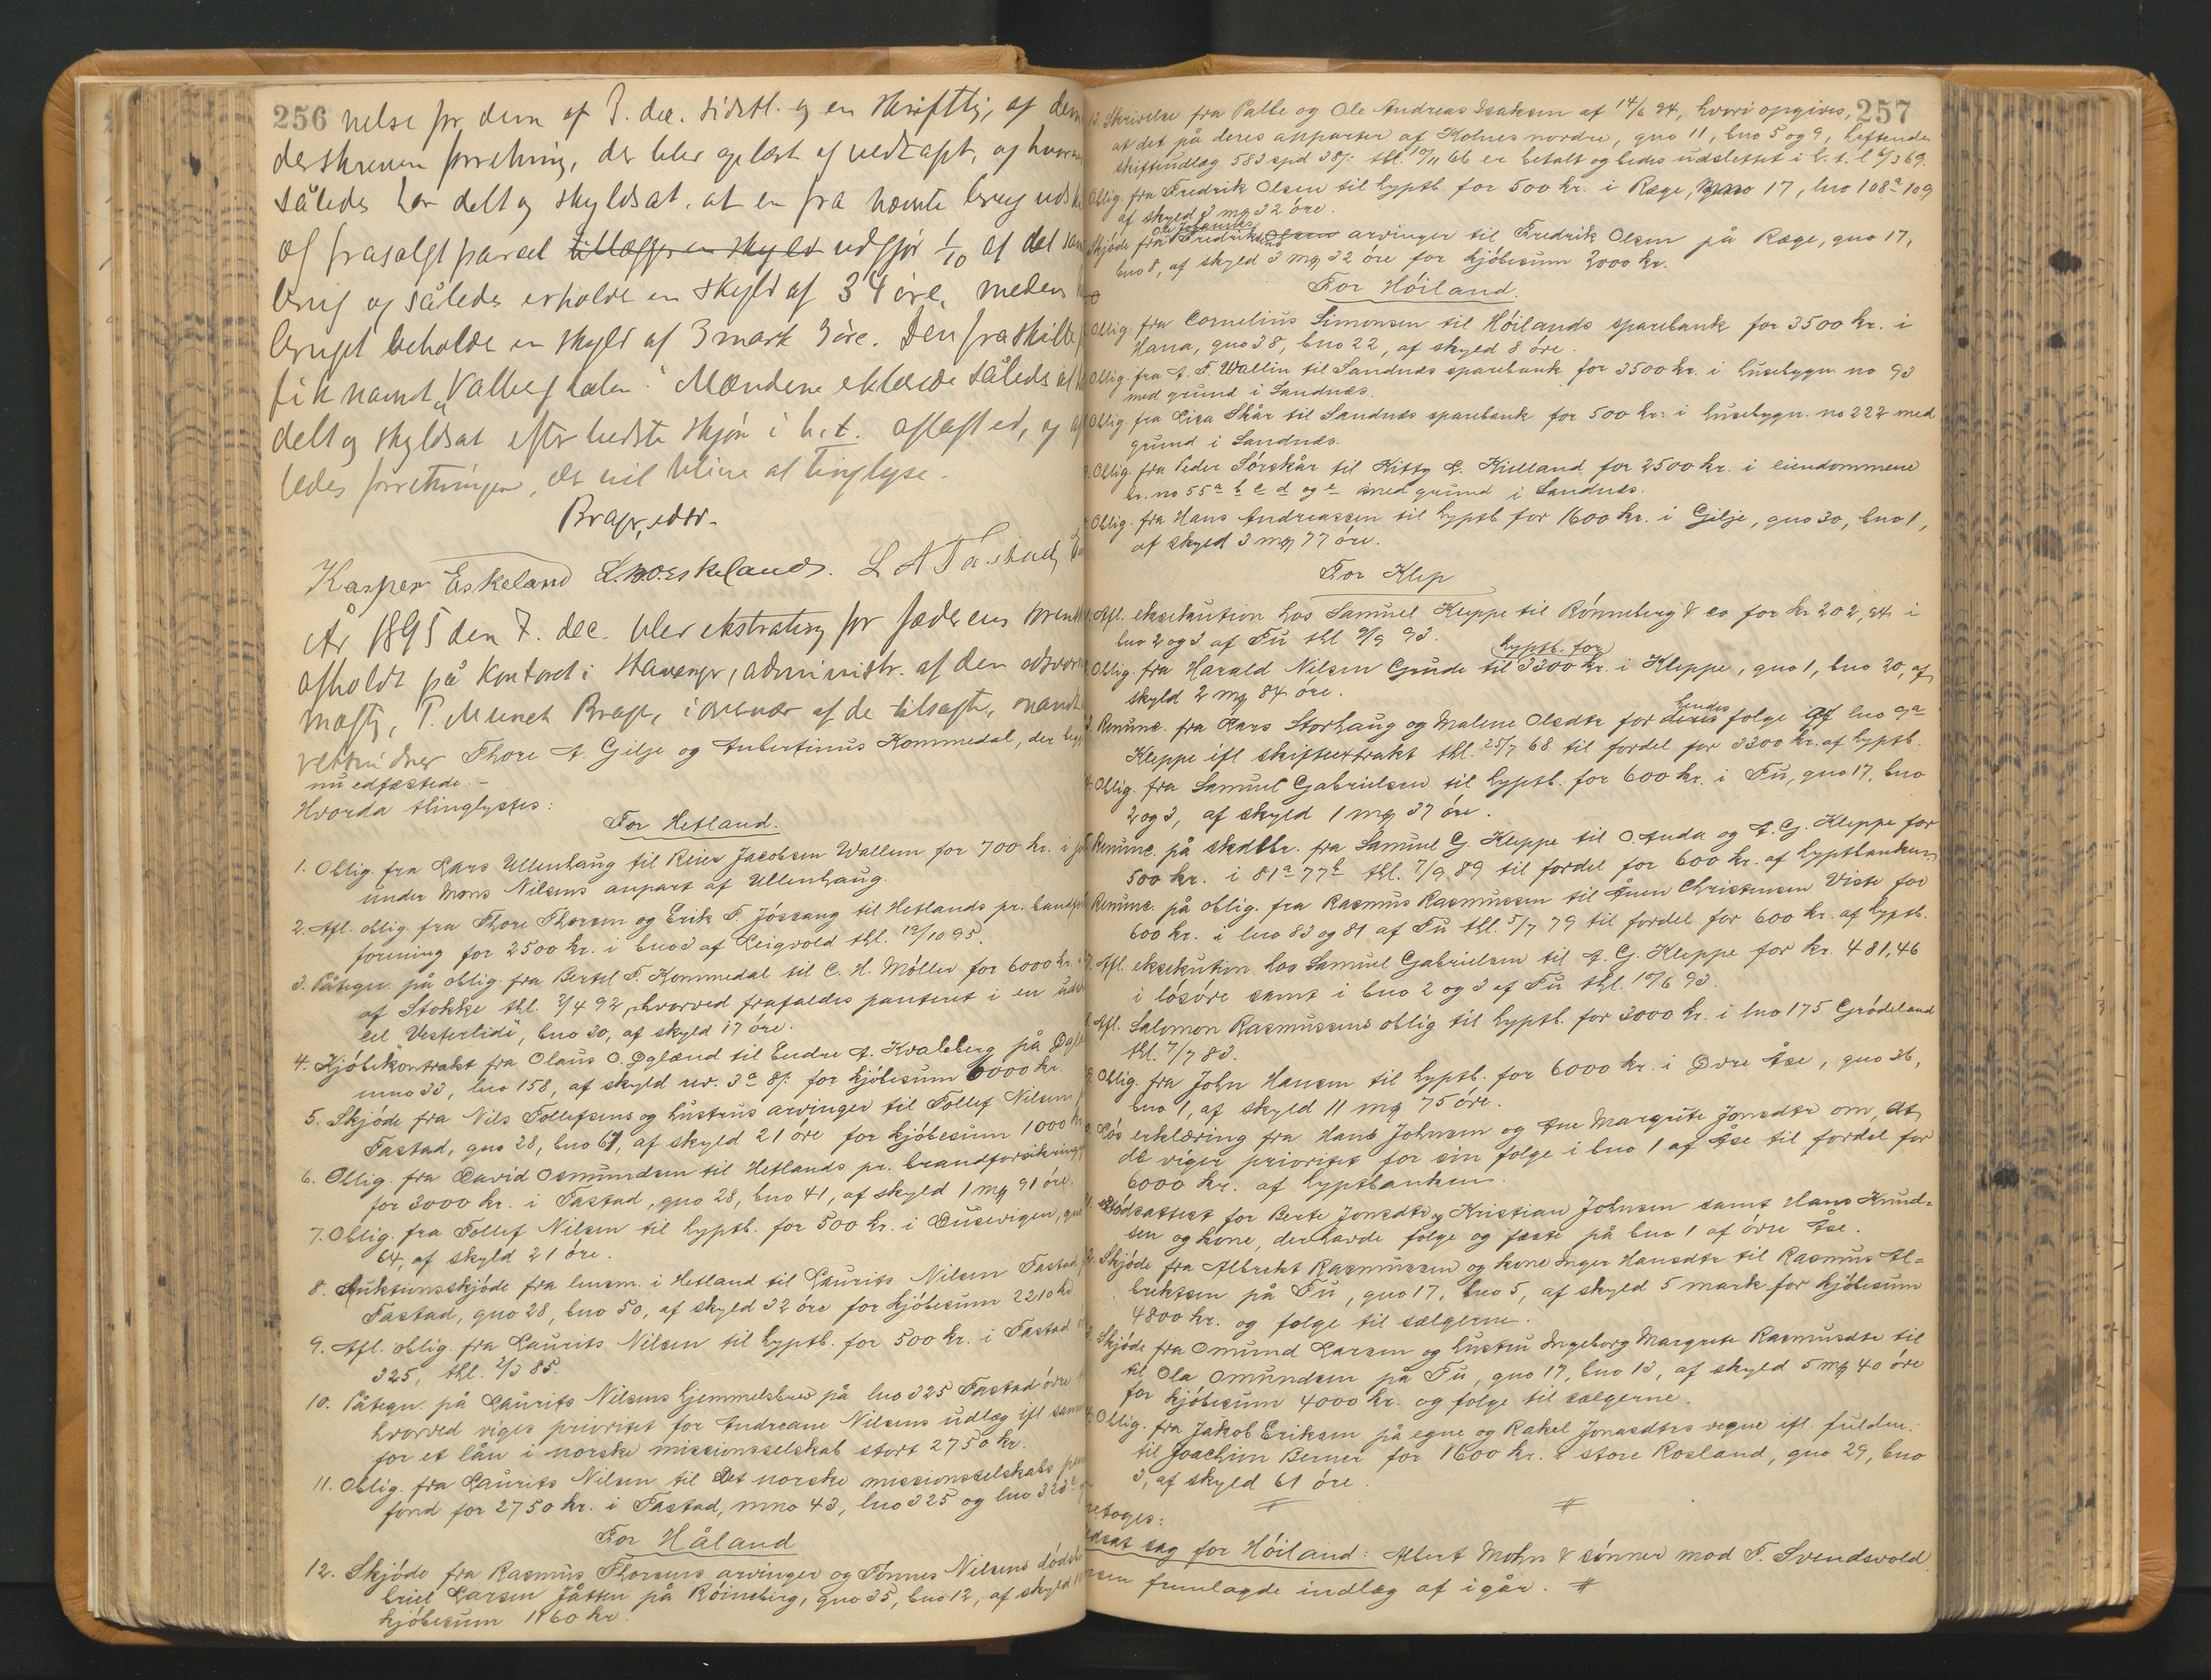 256
nelse for dem af 3. dec. sidstl. og en skriftlig, af dem
derskreven forretning, der blev oplæst og vedtagt, og hvorved
således har delt og skyldsat, at en fra nævnte brug uds
og frasolgt parcel tillægges en skyld udgjør 1/10 af det sam
brug og således erholde en skyld af 34 øre, medens
bruget beholde en skyld af 3 mark 3 øre. Den fraskilte
fik navnet „Valbergdalen". Mændene erklærede således at
delt og skyldsat efter bedste skjøn i h. t. aflagt ed, og
ledes forretningen, der vil blive at tinglyse.
Brager, edsv.
Kasper Eskeland L. M. O. Eskeland. L A Tastad
År 1895 den 7. dec. blev ekstrating for Jæderens
afholdt på kontoret i Stavanger, administr. af den edsvorne
mægtig, T. Munch Brager, i overvær af de tilsagte,
retsvidner Thore A. Gilje og Aubertinus Kommedal, der
nu edfæstede.-
Hvorda thinglystes:
For Hetland.
1. Oblig. fra Lars Ullenhaug til Reier Jacobsen Wallem for 700 kr. i
under Mons Nilsens anpart af Ullenhaug.
2. Afl. oblig. fra Thore Thorsen og Erik T. Jössang til Hetlands pr.
forening for 2500 kr. i bno 3 af Leigvold thl. 12/10 95.
3. Påtegn. på oblig. fra Bertel T. Kommedal til C. H. Möller for 6000 kr.
af Stokke thl. 2/4 92, hvorved frafaldes panteret i en
cel Vesterlidi, bno 30, af skyld 17 öre.
4. Kjöbekontrakt fra Olaus O. Dgland til Endre A. Kvaleberg på
mno 33, lno 158, af skyld rev. 3a 8/: for kjöbesum 6000 kr.
5. Skjöde fra Nils Tollefsens og hustrus arvinger til Tollef Nilsen
Tastad, gno 28, bno 67, af skyld 21 öre for kjöbesum 1000
6. Oblig. fra David Osmundsen til Hetlands pr. brandforsikrings
for 3000 kr. i Tastad, gno 28, bno 41, af skyld 1 mrk 91 öre.
7. Oblig. fra Tollef Nilsen til hyptb. for 500 kr. i Dusevigen,
64, af skyld 21 öre.
8. Auktionsskjöde fra lensm. i Hetland til Laurits Nilsen Tastad
Tastad, gno 28, bno 50, af skyld 32 öre for kjöbesum 2210 kr
9. Afl. oblig. fra Laurits Nilsen til hyptb. for 500 kr. i Tastad
325, thl. 2/3 85.
10. Påtegn. på Laurits Nilsens hjemmelsbrev på lno 325 Tastad övre
hvorved viges prioritet for Andreane Nilsens udlæg ifl
for et lån i norske missionsselskab stort 2750 kr.
11. Oblig. fra Laurits Nilsen til Det norske missionsselskabs
fond for 2750 kr. i Tastad, mno 43, lno 325 og lno 323
For Håland
12. Skjöde fra Rasmus Thorsens arvinger og Tönnes Nilsens dödsbo
briel Larsen Jåtten på Röineberg, gno 35, bno 12, af skyld
kjöbesum 1160 kr.
257
13. Skrivelse fra Palle og Ole Andreas Isaksen af 14/6 94, hvori opgives,
at det på deres apparter af Kolnes nordre, gno 11, bno 5 og 9, heftende
skifteudlæg 583 spd 38/: thl. 10/11 66 er betalt og bedes udslettet i h. t. l 6/3 69.
Oblig. fra Fredrik Olsen til hyptb. for 500 kr. i Ræge, mno 17, lno 108a 109
af skyld 3 mrk 32 öre.
Ole Johannes
Skjöde fra Fredriks Olsen arvinger til Fredrik Olsen på Ræge, gno 17,
bno 8, af skyld 3 mrk 32 öre for kjöbesum 2000 kr.
For Höiland.
Oblig. fra Cornelius Simonsen til Höilands sparebank for 3500 kr. i
Hana, gno 38, bno 22, af skyld 8 öre.
Oblig. fra A. T. Wallin til Sandnæs sparebank for 3500 kr. i husebygn. no 93
med grund i Sandnæs.
Oblig. fra Lisa Skår til Sandnæs sparebank for 500 kr. i husebygn. no 222 med
grund i Sandnæs.
Oblig. fra Peder Sörskår til Kitty G. Kielland for 2500 kr. i eiendommene
br. no 55a b c d og e med grund i Sandnæs.
Oblig. fra Hans Andreassen til hyptb for 1600 kr. i Gilje, gno 30, bno 1,
af skyld 3 mrk 77 öre.
For Klep
1. Afl. eksekution hos Samuel Kleppe til Rönneberg & co for kr 202,94 i
bno 2 og 3 af Tu thl 9/9 93.
hyptb. for
Oblig. fra Harald Nilsen Grude til 3300 kr. i Kleppe, gno 1, bno 20, af
skyld 2 mrk 84 öre.
hendes
3. Renunc. fra Lars Storhaug og Malene Olsdtr for deres folge af lno 9a
Kleppe ifl skifteextrakt thl. 25/7 68 til fordel for 3300 kr. af hyptb.
4. Oblig. fra Samuel Gabrielsen til hyptb. for 600 kr. i Tu, gno 17, bno
2 og 3, af skyld 1 mrk 37 öre.
Renunc. på skdsbr. fra Samuel G. Kleppe til O. Auda og A. G. Kleppe for
500 kr. i 81a 77b thl. 7/9 89 til fordel for 600 kr. af hyptbanken
Renunc. på oblig. fra Rasmus Rasmussen til Sven Christensen Viste for
600 kr. i lno 83 og 81 af Tu thl. 5/7 79 til fordel for 600 kr. af hyptb.
7. Afl. eksekution hos Samuel Gabrielsen til A. G. Kleppe for kr. 481,46
i lösöre samt i bno 2 og 3 af Tu thl. 10/6 93.
Afl. Salomon Rasmussens oblig til hyptb. for 3000 kr. i lno 175 Grödeland
thl. 7/7 83.
9. Oblig. fra John Hansen til hyptb. for 6000 kr. i Övre Åse, gno 36,
bno 1, af skyld 11 mrk 75 öre.
Lös erklæring fra Hans Johnsen og Ane Margrete Jonsdtr om, at
de viger prioritet for sin folge i bno 1 af Åse til fordel for
6000 kr. af hyptbanken.
Dödsattest for Berte Jonsdtr og Kristian Johnsen samt Hans Knud-
sen og kone, der havde folge og fæste på bno 1 af övre Åse.
2. Skjöde fra Albrekt Rasmussen og kone Inger Hansdtr til Rasmus Al-
brektsen på Tu, gno 17, bno 5, af skyld 5 mark for kjöbesum
4800 kr. og folge til sælgerne.
3. Skjöde fra Omund Larsen og hustru Ingeborg Margrete Rasmusdtr til
til Ola Omundsen på Tu, gno 17, bno 13, af skyld 5 mrk 40 öre
for kjöbesum 4000 kr. og folge til sælgerne.
4. Oblig. fra Jakob Eriksen på egne og Rakel Jonasdtrs vegne ifl. fuldm.
til Joachim Berner for 1600 kr. i store Rosland, gno 29, bno
3, af skyld 61 öre.
toges:
sag for Höiland: Albert Mohn & sönner mod T. Svendsvold
fremlagde indlæg af igår. #